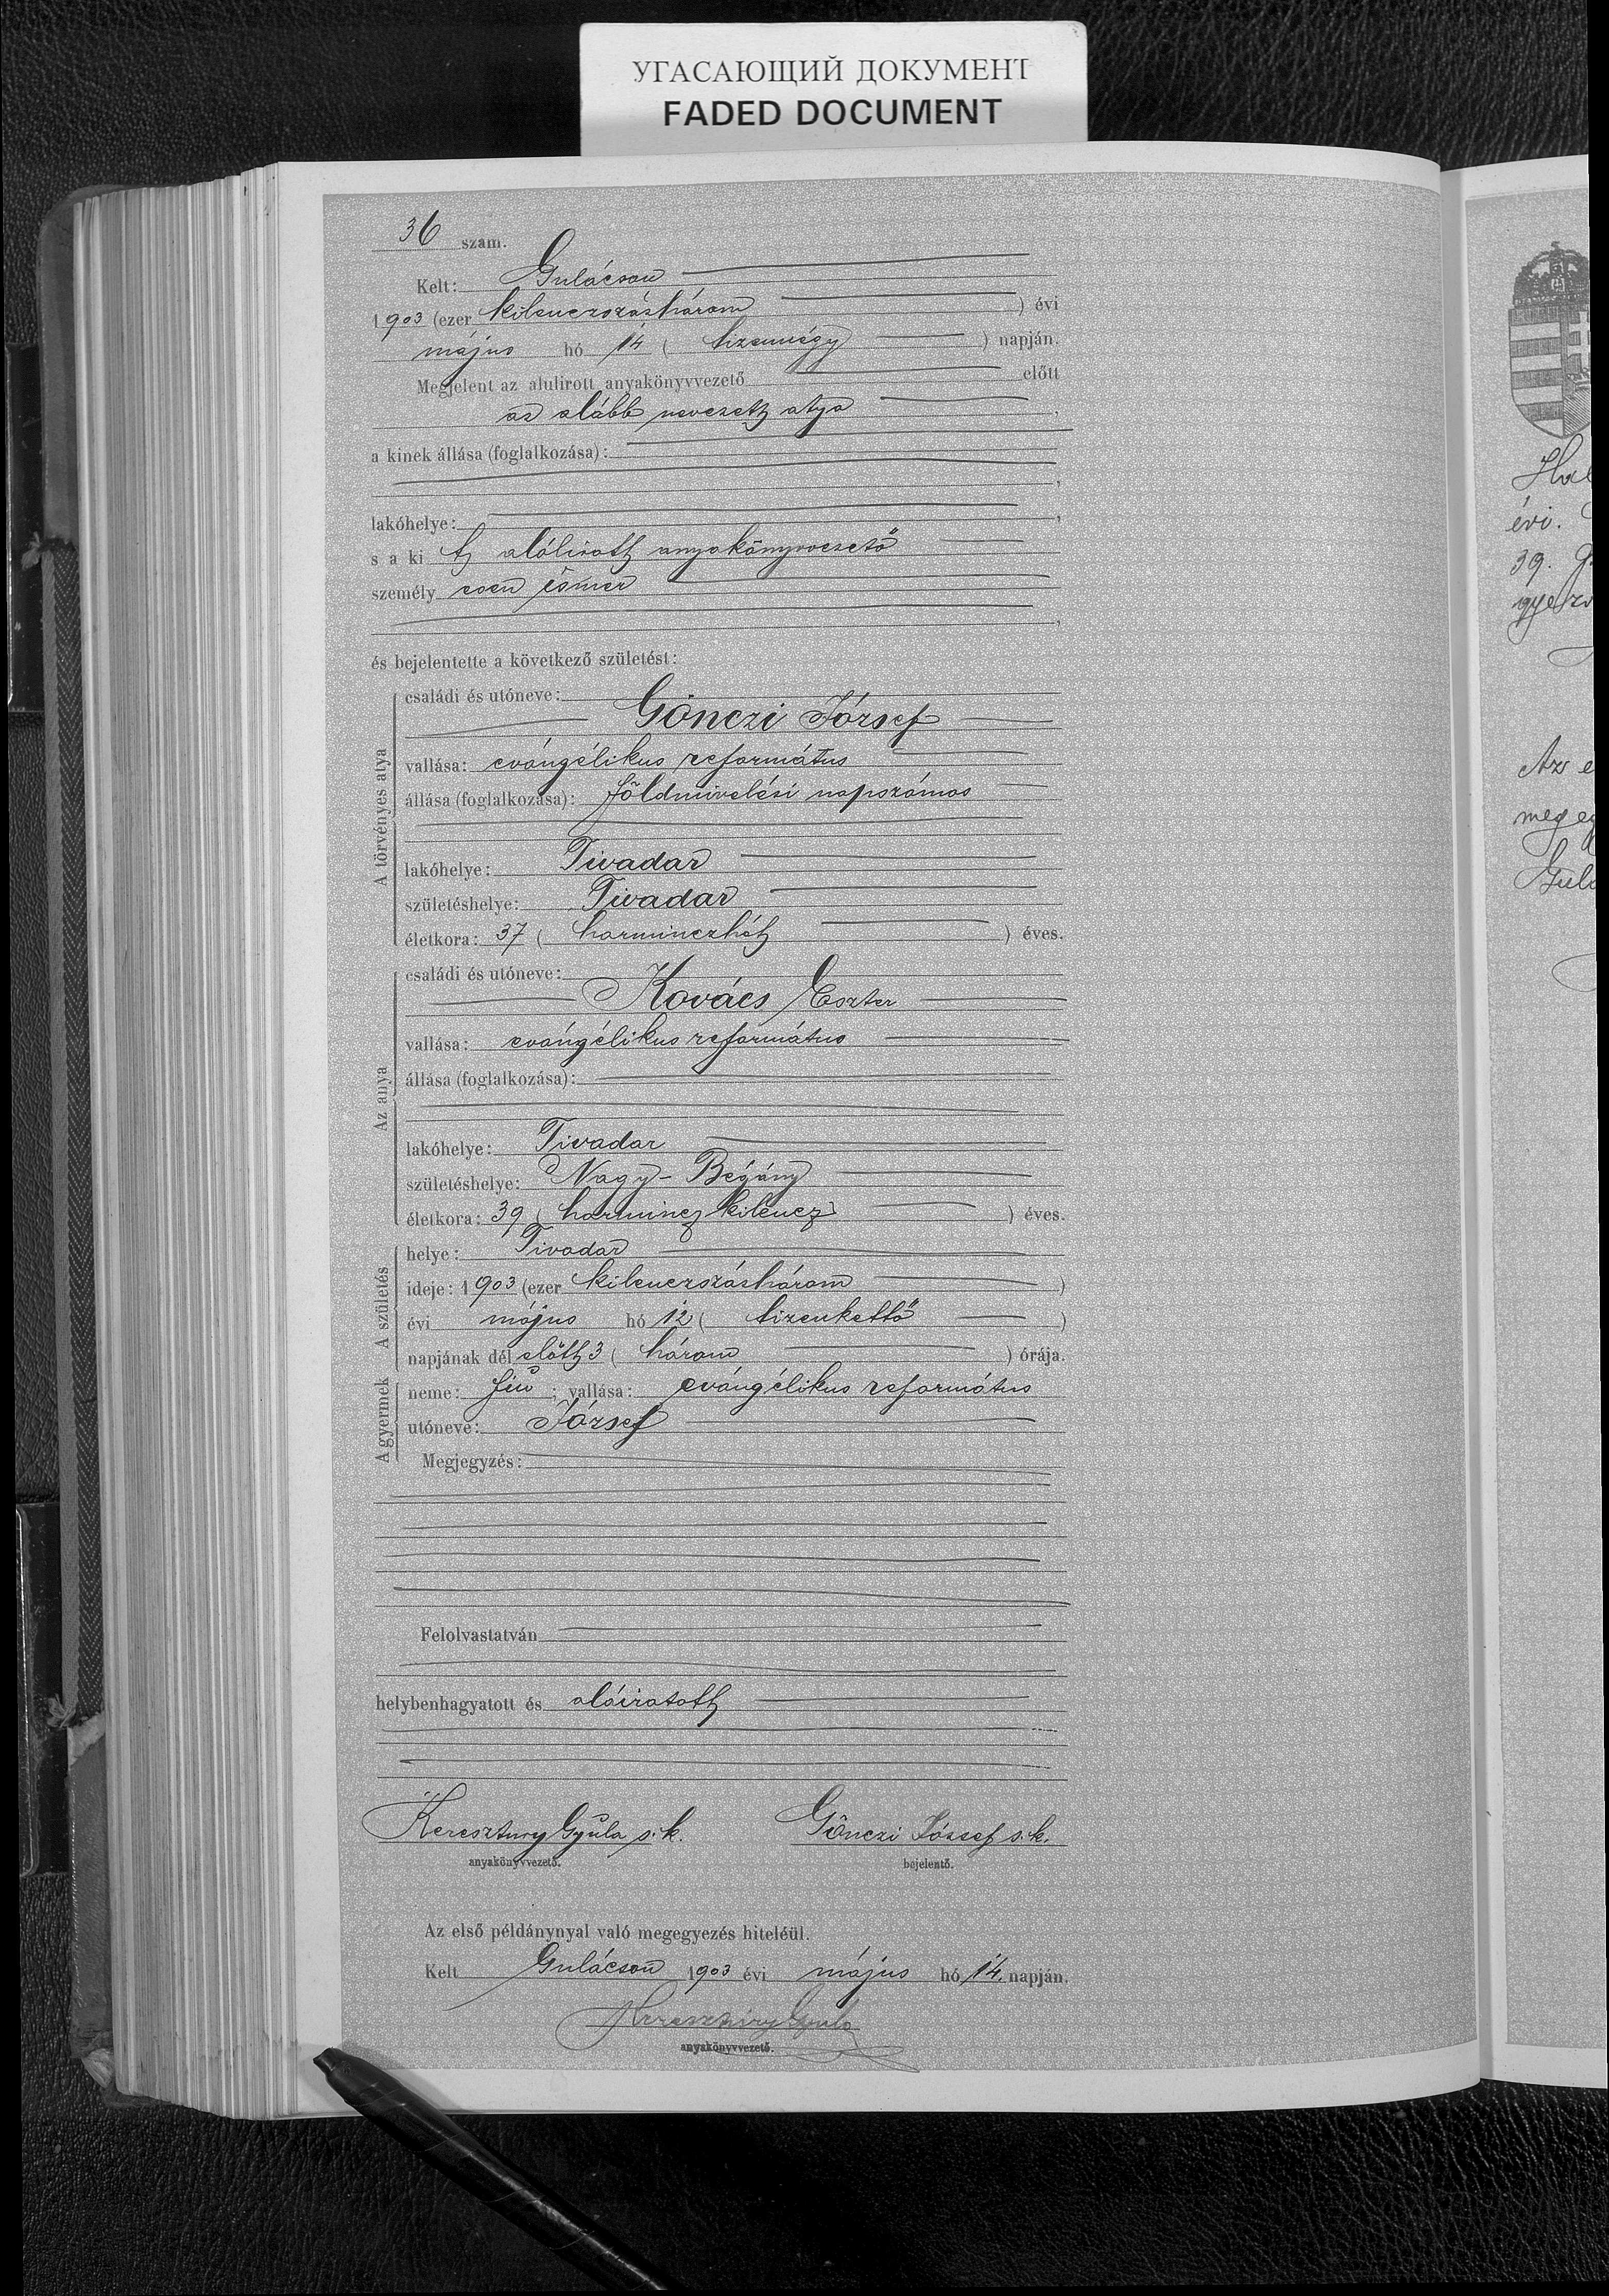 УГАСАЮЩИЙ ДОКУМЕНТ
FADED DOCUMENT
36 szám.
Kelt: Gulácson
1903 (ezer kilenczszázhárom ) évi
május hó 14 ( tizennégy ) napján.
Megjelent az alulirott anyakönyvvezető előtt
az alább nevezett atya ,
a kinek állása (foglalkozása):
,
lakóhelye: ,
s a ki t alólirott anyakönyvvezető
személy esen ismer
,
és bejelentette a következő születést:
A törvényes atya
családi és utóneve:
Gönczi József
vallása: evángélikus református
állása (foglalkozása): földmivelési napszámos
lakóhelye: Tivadar
születéshelye: Tivadar
életkora: 37 ( harminczhét ) éves.
Az anya
családi és utóneve:
Kovács Eszter
vallása: evángélikus református
állása (foglalkozása):
lakóhelye: Tivadar
születéshelye: Nagy-Bégány
életkora: 39 ( harmincz kilencz ) éves.
A születés
helye: Tivadar
ideje: 1903 (ezer kilenczszázhárom )
évi május hó 12 ( tizenkettő )
napjának dél előtt 3 ( három ) órája.
A gyermek
neme: fiu ; vallása: evángélikus református
utóneve: József
Megjegyzés:
Felolvastatván
helybenhagyatott és aláiratott
Keresztury Gyula s. k. Gönczi József s. k.
anyakönyvvezető. bejelentő.
Az első példánynyal való megegyezés hiteléül.
Kelt Gulácson 1903 évi május hó 14. napján.
Keresztury Gyula
anyakönyvvezető.
évi.
39.
Az e
meg eg